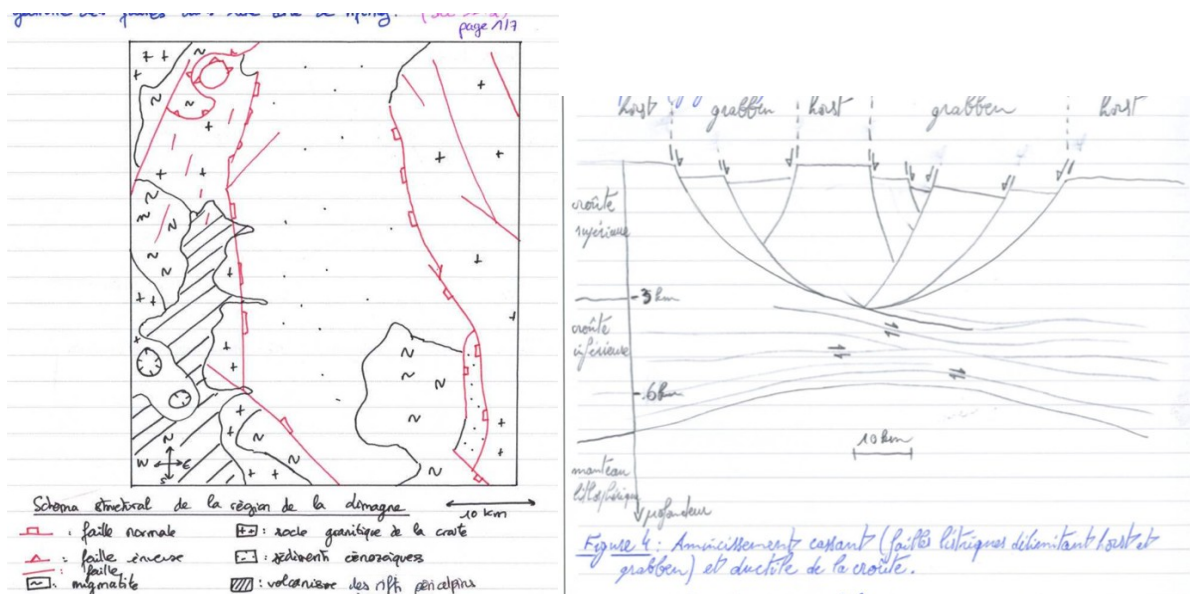 page 1/7
N
W E
S
Schéma structural de la région de la Limagne
10 km
: faille normale
: socle granitique de la croute
: faille inverse
: sédiments cénozoïques
: faille
: migmatite
: volcanisme des rifts péri alpins
horst grabben horst grabben horst
croûte
supérieure
-3 km
croûte
inférieure
-6 km
10 km
manteau
lithosphérique
profondeur
Figure 4 : Amincissement cassant (failles listriques délimitant horst et
grabben) et ductile de la croûte.